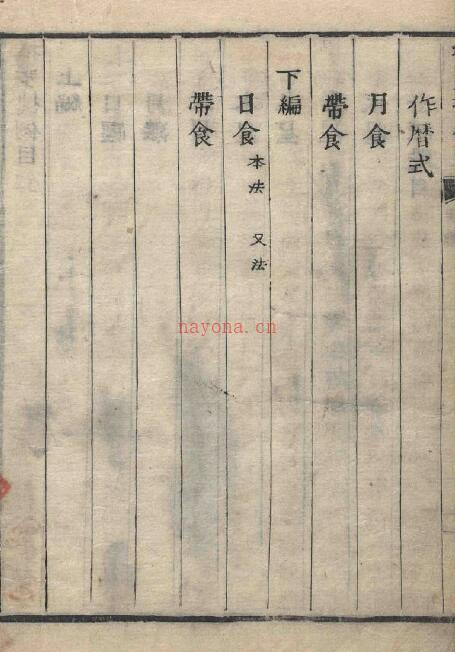 作暦式
月食
帶食
下編
日食 本法 又法
帶食
nayona.cn